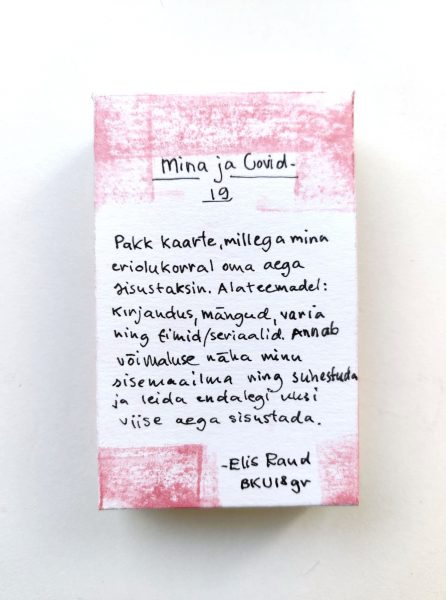 Mina ja Covid-
19
Pakk kaarte, millega mina
eriolukorral oma aega
sisustaksin. Alateemadel:
Kirjandus, mängud, varia
ning filmid/seriaalid. Annab
võimaluse näha minu
sisemaailma ning suhestuda
ja leida endalegi uusi
viise aega sisustada.
-Elis Raud
BKU18gr